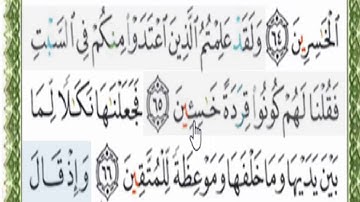 الْخَاسِرِينَ ﴿٦٤﴾ وَلَقَدْ عَلِمْتُمُ الَّذِينَ اعْتَدَوْا مِنكُمْ فِي السَّبْتِ
فَقُلْنَا لَهُمْ كُونُوا قِرَدَةً خَاسِئِينَ ﴿٦٥﴾ فَجَعَلْنَاهَا نَكَالًا لِّمَا
بَيْنَ يَدَيْهَا وَمَا خَلْفَهَا وَمَوْعِظَةً لِّلْمُتَّقِينَ ﴿٦٦﴾ وَإِذْ قَالَ